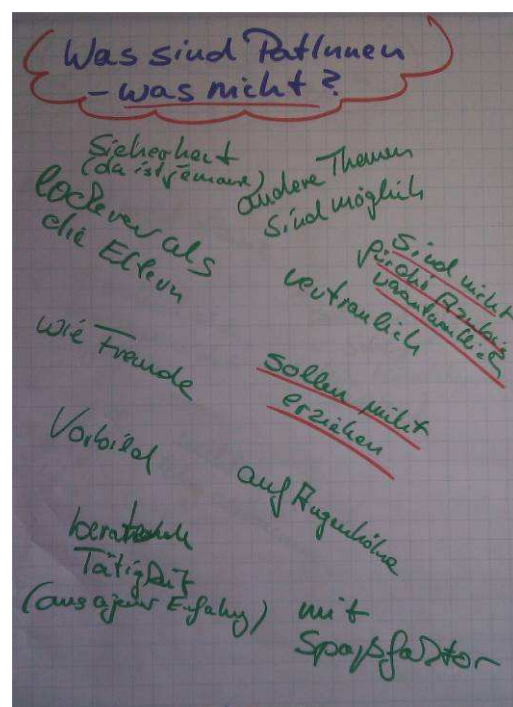 Was sind PatInnen
- was nicht?
Sicherheit
(da ist jemand)
andere Themen
sind möglich
lockerer als
die Eltern
sind nicht
für die Azubis
verantwortlich
vertraulich
wie Freunde
sollen nicht
erziehen
Vorbild
auf Augenhöhe
beratende
Tätigkeit
(aus eigener Erfahrung)
mit
Spaßfaktor